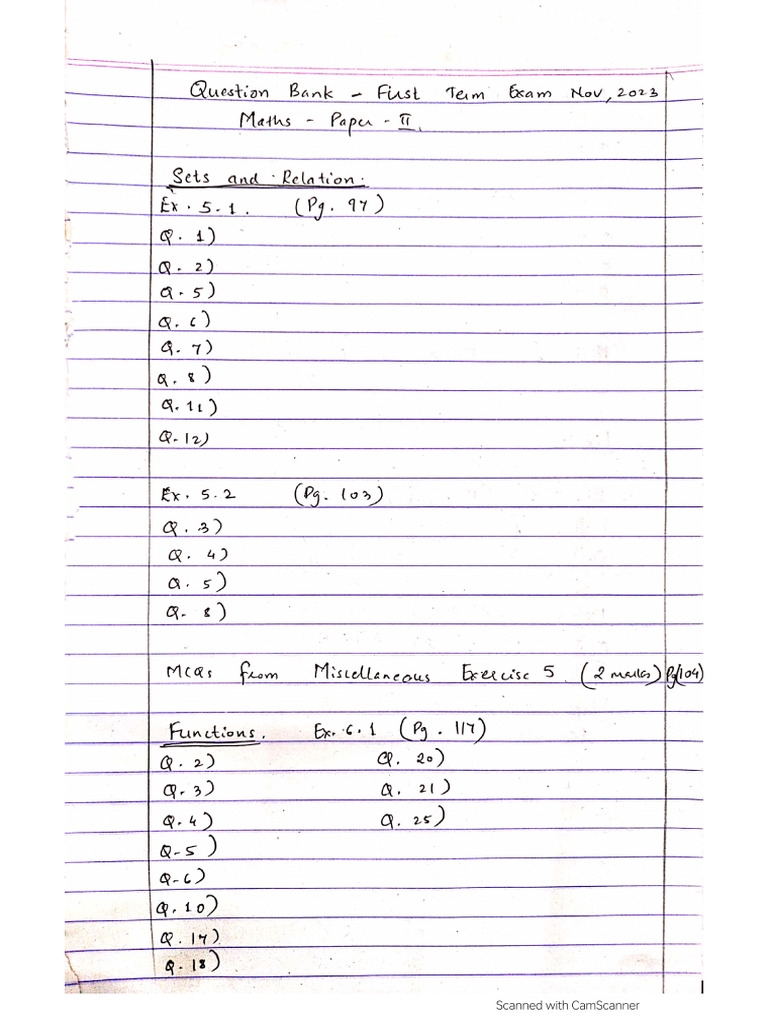 Question Bank - First Term Exam Nov, 2023
Maths - Paper - II.
Sets and Relation.
Ex. 5.1. (Pg. 97)
Q. 1)
Q. 2)
Q. 5)
Q. 6)
Q. 7)
Q. 8)
Q. 11)
Q. 12)
Ex. 5.2 (Pg. 103)
Q. 3)
Q. 4)
Q. 5)
Q. 8)
MCQs from Miscellaneous Exercise 5. (2 marks) Pg(104)
Functions. Ex. 6.1 (Pg. 117)
Q. 2) Q. 20)
Q. 3) Q. 21)
Q. 4) Q. 25)
Q. 5)
Q. 6)
Q. 10)
Q. 17)
Q. 18)
Scanned with CamScanner